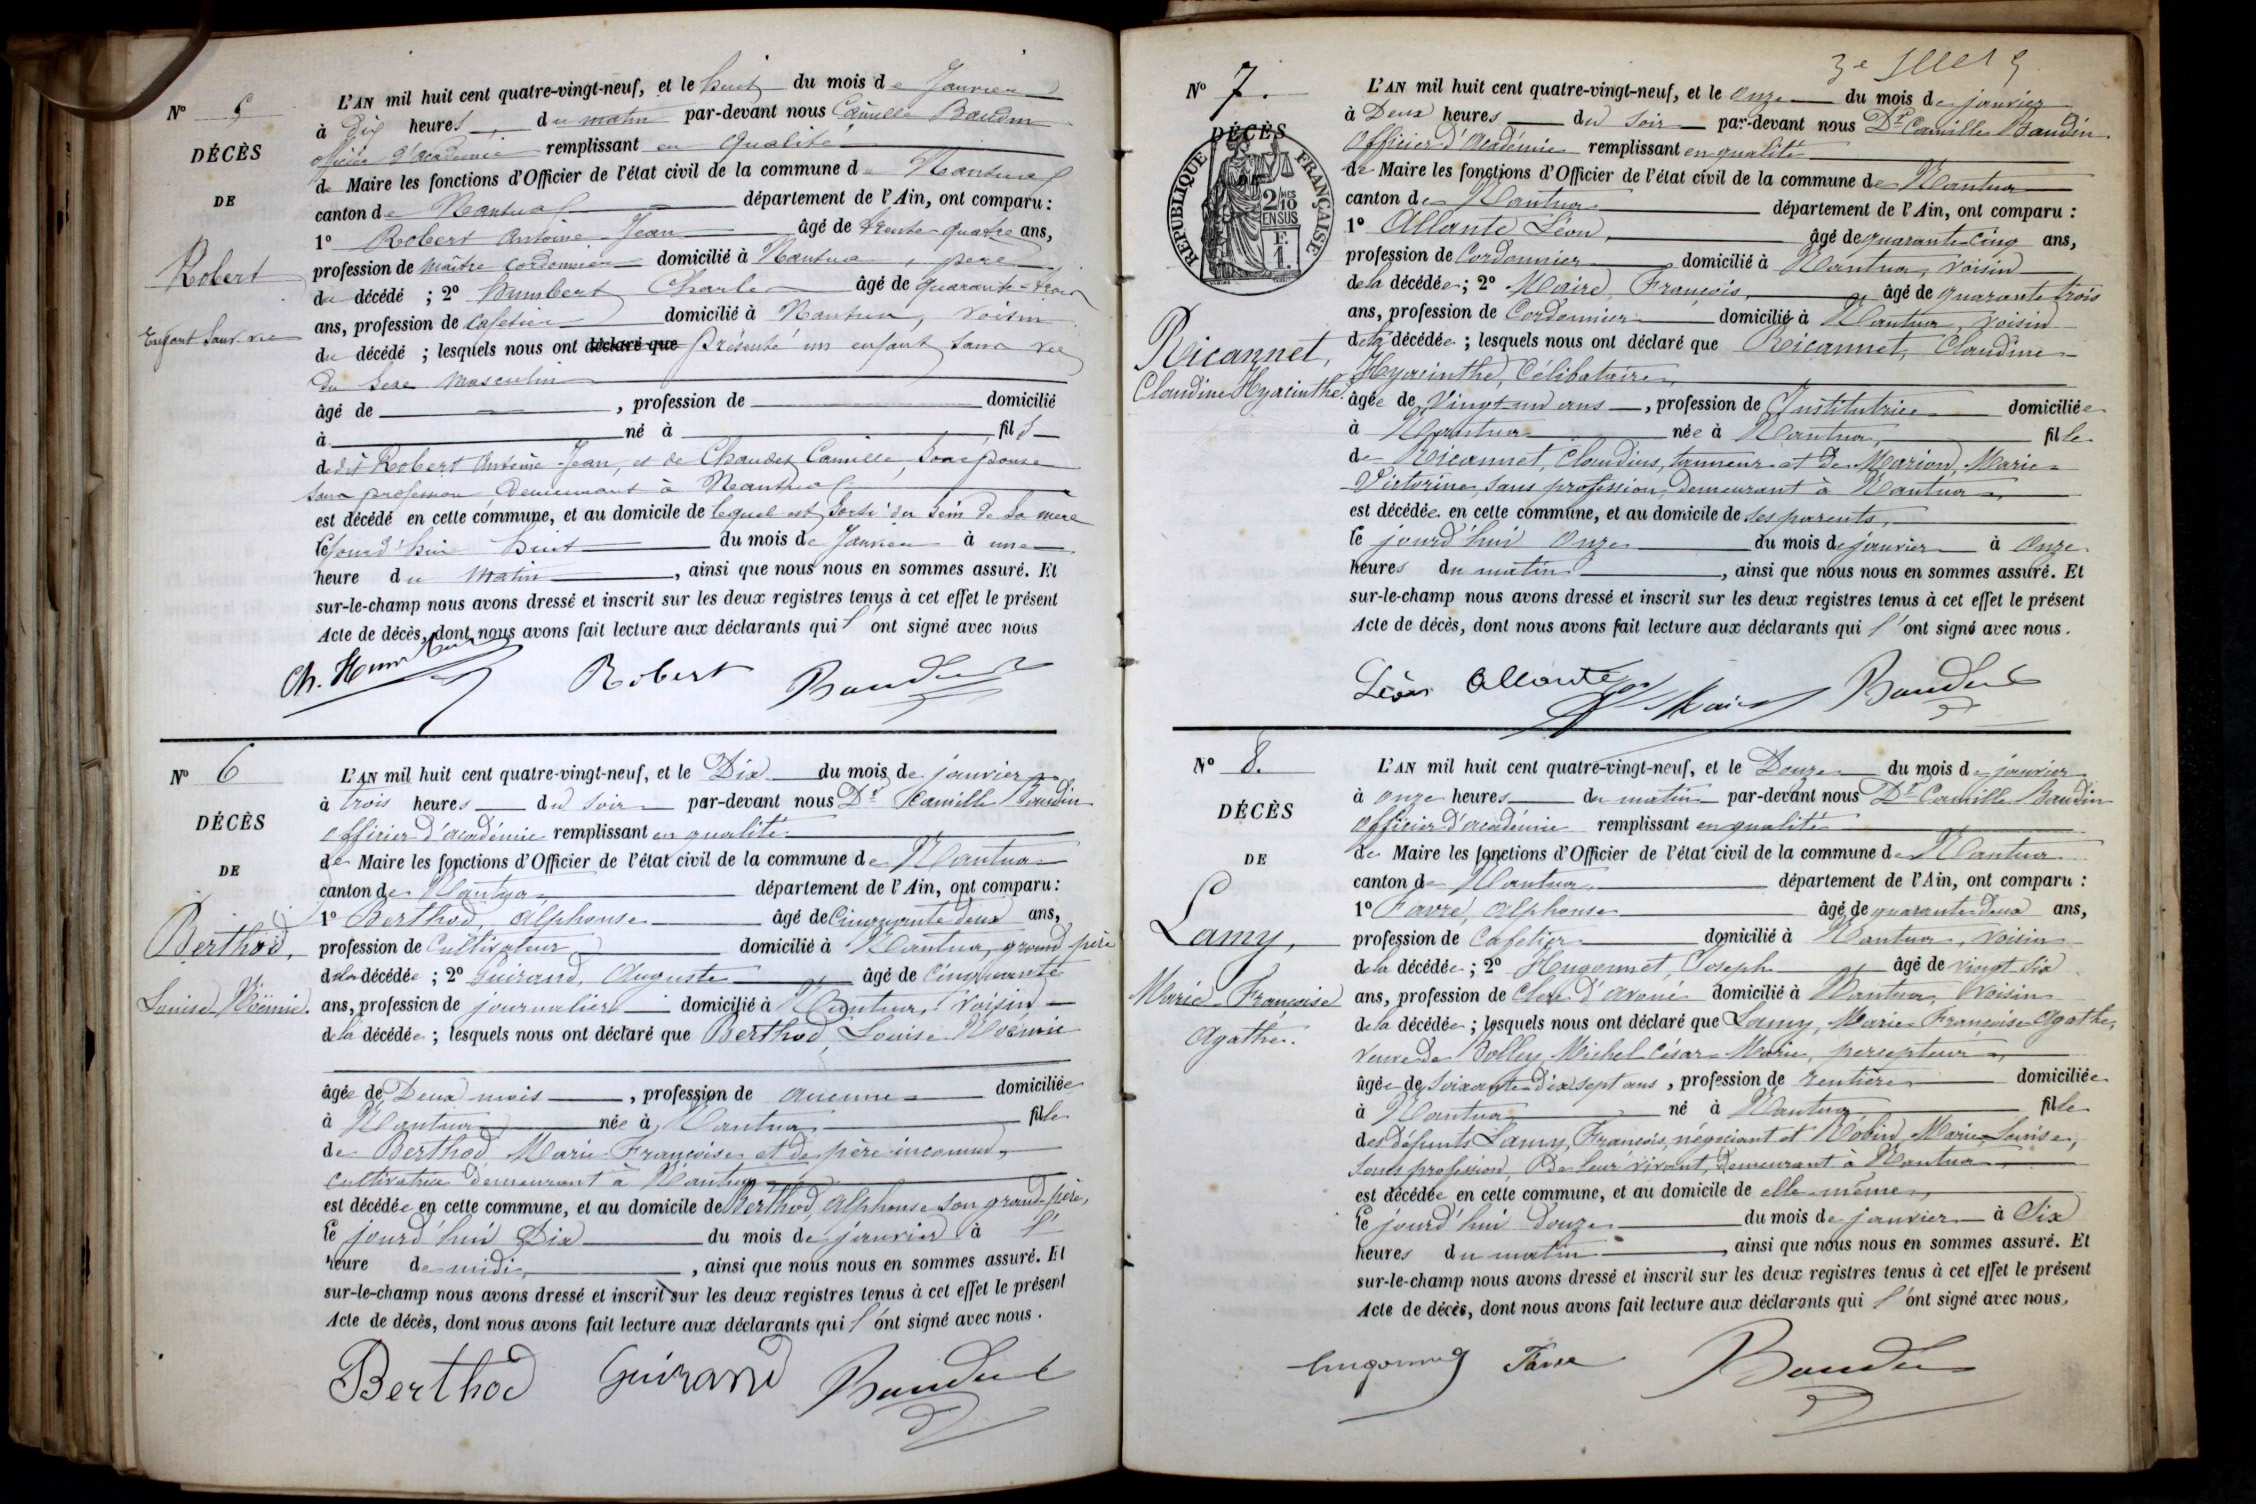 N° 5
DÉCÈS
DE
Robert
Enfant sans vie
L'AN mil huit cent quatre-vingt-neuf, et le huit du mois de Janvier
à Dix heures du matin par-devant nous Camille Baudin
officier d'académie remplissant en qualité
de Maire les fonctions d'Officier de l'état civil de la commune de Nantua
canton de Nantua département de l'Ain, ont comparu :
1° Robert Antoine Jean âgé de trente-quatre ans,
profession de maître cordonnier domicilié à Nantua, père
du décédé ; 2° Humbert Charles âgé de quarante-trois
ans, profession de cafetier domicilié à Nantua, voisin
du décédé ; lesquels nous ont déclaré que présenté un enfant sans vie
du sexe masculin
âgé de , profession de domicilié
à né à fils
de dit Robert Antoine Jean, et de Chaudet Camille, son épouse
sans profession demeurant à Nantua
est décédé en cette commune, et au domicile de lequel est sorti du sein de sa mère
le jourd'hui huit du mois de Janvier à une
heure du matin , ainsi que nous nous en sommes assuré. Et
sur-le-champ nous avons dressé et inscrit sur les deux registres tenus à cet effet le présent
Acte de décès, dont nous avons fait lecture aux déclarants qui l'ont signé avec nous
Ch. Humbert Robert Baudin
N° 6
DÉCÈS
DE
Berthod,
Louise Noémie.
L'AN mil huit cent quatre-vingt-neuf, et le Dix du mois de janvier
à trois heures du soir par-devant nous Dr Camille Baudin
officier d'académie remplissant en qualité
de Maire les fonctions d'Officier de l'état civil de la commune de Nantua
canton de Nantua département de l'Ain, ont comparu :
1° Berthod, Alphonse âgé de Cinquante deux ans,
profession de Cultivateur domicilié à Nantua, grand père
de la décédée ; 2° Guirand, Auguste âgé de Cinquante
ans, profession de journalier domicilié à Nantua, voisin
de la décédée ; lesquels nous ont déclaré que Berthod, Louise Noémie
âgée de Deux mois , profession de aucune domiciliée
à Nantua née à Nantua fille
de Berthod Marie Françoise et de père inconnu,
cultivatrice demeurant à Nantua
est décédée en cette commune, et au domicile de Berthod, Alphonse son grand-père,
le jourd'hui Dix du mois de janvier à l'
heure de midi , ainsi que nous nous en sommes assuré. Et
sur-le-champ nous avons dressé et inscrit sur les deux registres tenus à cet effet le présent
Acte de décès, dont nous avons fait lecture aux déclarants qui l'ont signé avec nous.
Berthod Guirand Baudin
N° 7.
DÉCÈS
RÉPUBLIQUE FRANÇAISE
2 MES
10
EN SUS
Ricannet,
Claudine Hyacinthe.
L'AN mil huit cent quatre-vingt-neuf, et le onze du mois de janvier
à Deux heures du soir par-devant nous Dr Camille Baudin
officier d'académie remplissant en qualité
de Maire les fonctions d'Officier de l'état civil de la commune de Nantua
canton de Nantua département de l'Ain, ont comparu :
1° Allante Léon, âgé de quarante-cinq ans,
profession de Cordonnier domicilié à Nantua, voisin
de la décédée ; 2° Maire, François, âgé de quarante trois
ans, profession de Cordonnier domicilié à Nantua, voisin
de la décédée ; lesquels nous ont déclaré que Ricannet, Claudine
Hyacinthe, Célibataire,
âgée de Vingt-un ans , profession de Institutrice domiciliée
à Nantua née à Nantua, fille
de Ricannet, Claudius, tanneur et de Marion, Marie
Victorine, sans profession, demeurant à Nantua
est décédée en cette commune, et au domicile de ses parents,
le jourd'hui Onze du mois de janvier à Onze
heures du matin , ainsi que nous nous en sommes assuré. Et
sur-le-champ nous avons dressé et inscrit sur les deux registres tenus à cet effet le présent
Acte de décès, dont nous avons fait lecture aux déclarants qui l'ont signé avec nous.
Léon Allante Maire Baudin
N° 8.
DÉCÈS
DE
Lamy,
Marie-Françoise
Agathe.
L'AN mil huit cent quatre-vingt-neuf, et le Douze du mois de janvier
à onze heures du matin par-devant nous Dr Camille Baudin
officier d'académie remplissant en qualité
de Maire les fonctions d'Officier de l'état civil de la commune de Nantua
canton de Nantua département de l'Ain, ont comparu :
1° Favre, Alphonse âgé de quarante deux ans,
profession de Cafetier domicilié à Nantua, voisin
de la décédée ; 2° Hugonnet, Joseph âgé de vingt six
ans, profession de Clerc d'avoué domicilié à Nantua, voisin
de la décédée ; lesquels nous ont déclaré que Lamy, Marie Françoise Agathe,
veuve de Jolley, Michel César Marie, persepteur,
âgée de soixante-dix sept ans , profession de rentière domiciliée
à Nantua né à Nantua fille
des défunts Lamy, François, négociant et Robin, Marie Louise,
sans profession, de leur vivant, demeurant à Nantua
est décédée en cette commune, et au domicile de elle-même,
le jourd'hui Douze du mois de janvier à Six
heures du matin , ainsi que nous nous en sommes assuré. Et
sur-le-champ nous avons dressé et inscrit sur les deux registres tenus à cet effet le présent
Acte de décès, dont nous avons fait lecture aux déclarants qui l'ont signé avec nous.
Hugonnet Favre Baudin